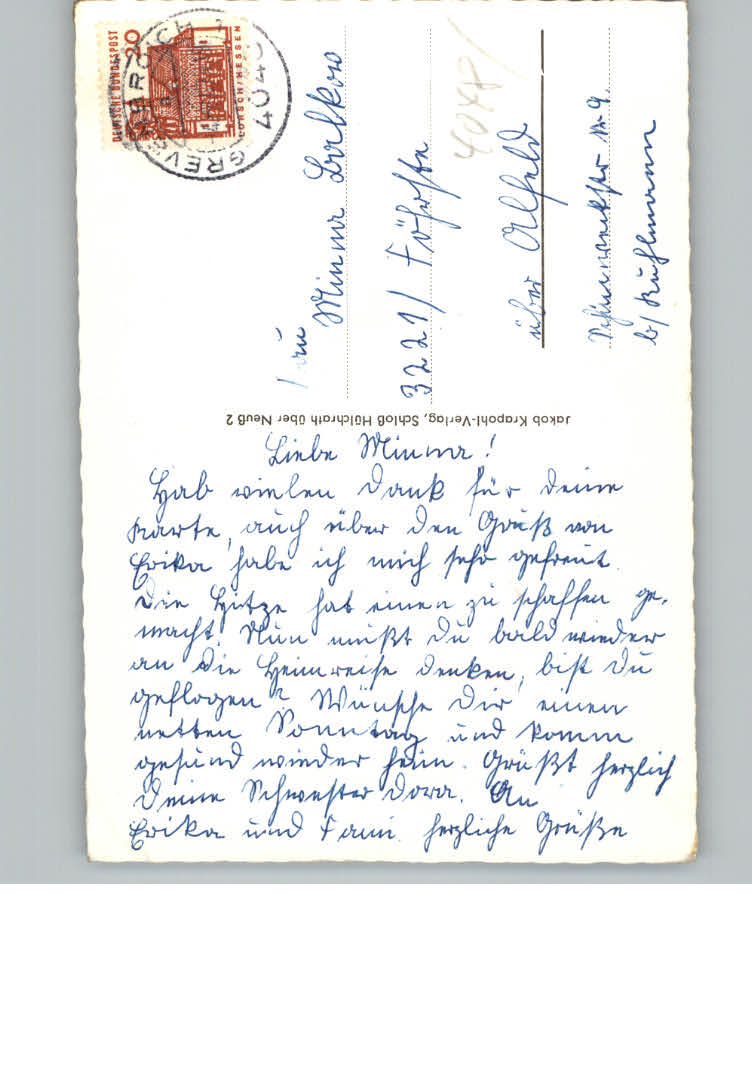 Liebe Minna!
Hab vielen Dank für deine
Karte, auch über den Gruß von
Erika habe ich mich sehr gefreut.
Die Hitze hat einen zu schaffen ge-
macht. Nun mußt Du bald wieder
an die Heimreise denken, bist Du
geflogen? Wünsche Dir einen
netten Sonntag und komm
gesund wieder heim. Grüßt herzlich
Deine Schwester Dora. An
Erika und Fam. herzliche Grüße
Frau
Minna
3221/ Föhrste
über Alfeld
b/ Kuhlmann
4048/
Jakob Krapohl-Verlag, Schloß Hülchrath über Neuß 2
DEUTSCHE BUNDESPOST
20
LORSCH/HESSEN
4048 GREVENBROICH